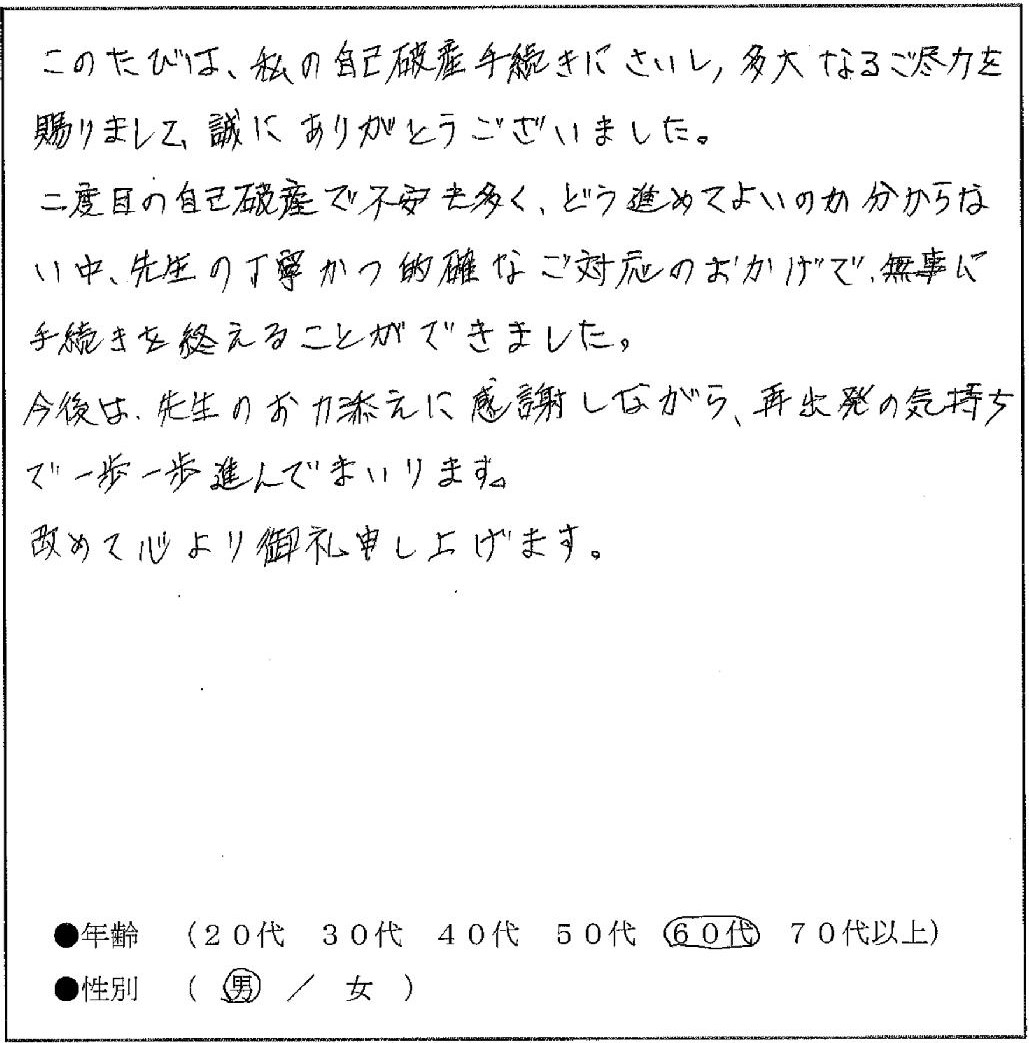 このたびは、私の自己破産手続きにさいし,多大なるご尽力を
賜りまして、誠にありがとうございました。
二度目の自己破産で不安も多く、どう進めてよいのか分からな
い中、先生の丁寧かつ的確なご対応のおかげで、無事に
手続きを終えることができました。
今後は、先生のお力添えに感謝しながら、再出発の気持ち
で一歩一歩進んでまいります。
改めて心より御礼申し上げます。
●年齢 （２０代 ３０代 ４０代 ５０代 ６０代 ７０代以上）
●性別 （ 男 ／ 女 ）